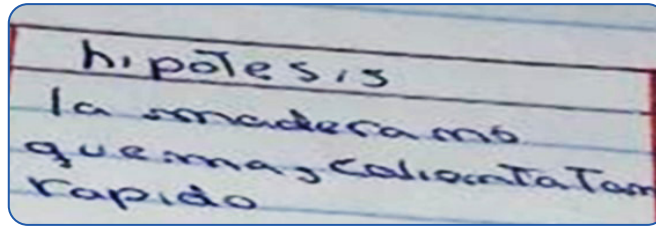 hipotesis
la madera mo
quema, calienta Tan
rapido